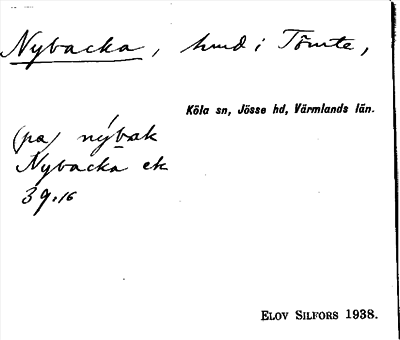 Nybacka, hmd i Tömte,
Köla sn, Jösse hd, Värmlands län.
(pa) nýbak
Nybacka ek
39:16
ELOV SILFORS 1938.